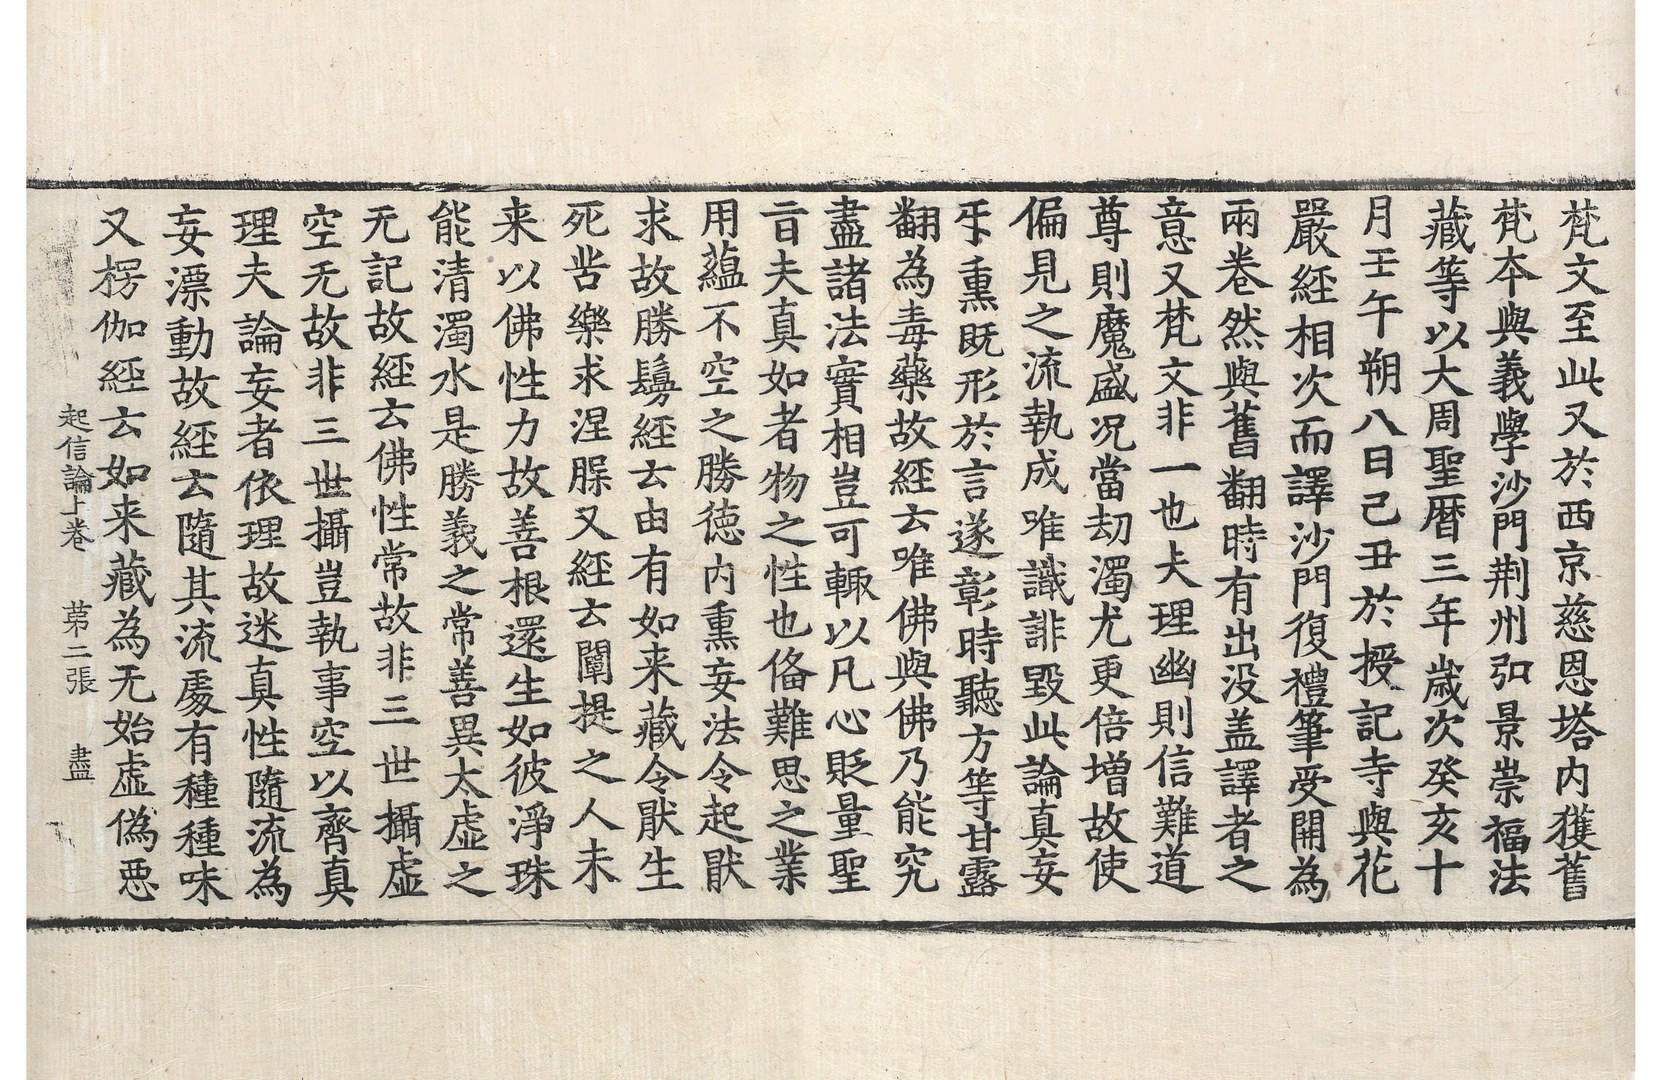 梵文至此又於西京慈恩塔内獲舊
梵夲與義學沙門荆州弘景崇福法
藏等以大周聖曆三年歳次癸亥十
月壬午朔八日己丑於授記寺與花
嚴經相次而譯沙門復禮筆受開為
兩卷然與舊翻時有出没盖譯者之
意又梵文非一也夫理幽則信難道
尊則魔盛况當劫濁尤更倍增故使
偏見之流執成唯識誹毀此論真妄
㸦熏既形於言遂彰時聽方等甘露
翻為毒藥故經云唯佛與佛乃能究
盡諸法實相豈可輙以凡心貶量聖
旨夫真如者物之性也俻難思之業
用蘊不空之勝徳内熏妄法令起猒
求故勝鬘經云由有如来藏令猒生
死苦樂求涅槃又經云闡提之人未
来以佛性力故善根還生如彼淨珠
能清濁水是勝義之常善異太虚之
无記故經云佛性常故非三世攝虚
空无故非三世攝豈執事空以齊真
理夫論妄者依理故迷真性隨流為
妄漂動故經云隨其流處有種種味
又楞伽經云如来藏為无始虚偽惡
起信論上卷 苐二張 盡